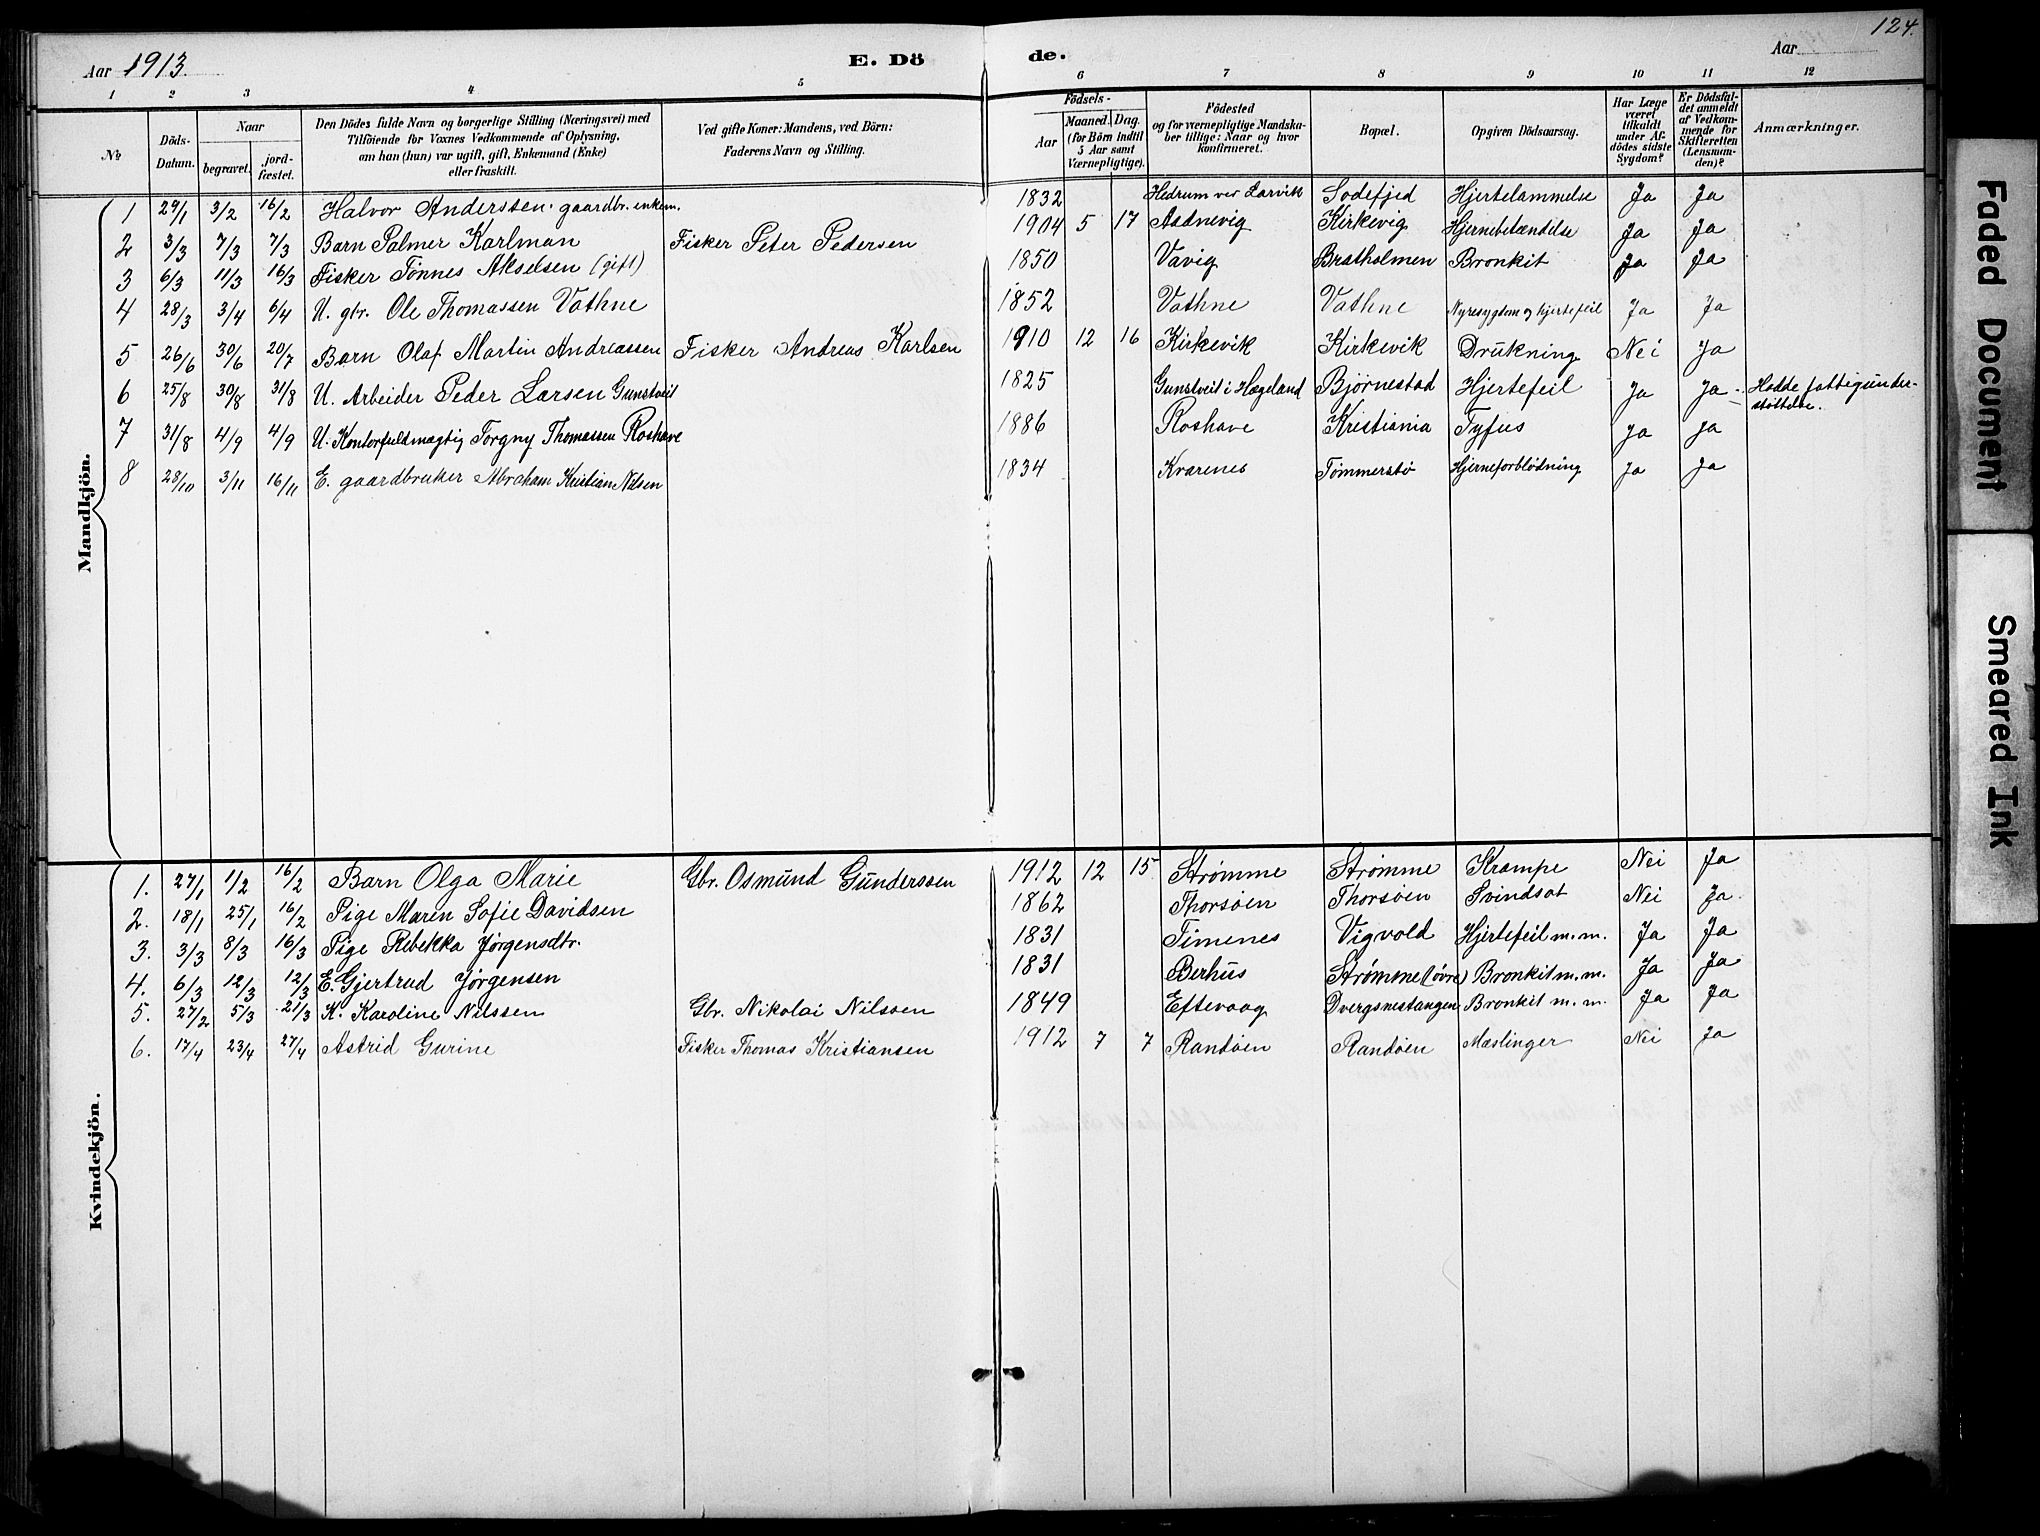 124.
Aar 1913.
E. Dö de.
Aar
1 2 3 4 5 6 7 8 9 10 11 12
No
Döds-Datum.
Naar
begravet.
jordfæstet.
Den Dödes fulde Navn og borgerlige Stilling (Næringsvei) med
Tilföiende for Voxnes Vedkommende af Oplysning,
om han (hun) var ugift, gift, Enkemand (Enke)
eller fraskilt.
Ved gifte Koner: Mandens, ved Börn:
Faderens Navn og Stilling.
Födsels-
Aar
Maaned. Dag.
(for Börn indtil
5 Aar samt
Værnepligtige).
Födested
og for værnepligtige Mandskaber tillige: Naar og hvor
konfirmeret.
Bopæl.
Opgiven Dödsaarsag.
Har Læge
været
tilkaldt
under Afdödes sidste
Sygdom?
Er Dödsfaldet anmeldt
af Vedkommende for
Skifteretten
(Lensmanden)?
Anmærkninger.
Mandkjön.
1 29/1 3/2 16/2 Halvor Anderssen gaardbr. enkem. 1832 Hedrum ved Larvik Sodefjed Hjertelammelse Ja Ja
2 3/3 7/3 7/3 Barn Palmer Karlman Fisker Peter Pedersen 1904 5 17 Aadnevig Kirkevig Hjernebetændelse Ja Ja
3 6/3 11/3 16/3 Fisker Tønnes Akselsen (gift) 1850 Vavig Bratholmen Bronkit Ja Ja
4 28/3 3/4 6/4 U. gbr. Ole Thomassen Vathne 1852 Vathne Vathne Nyresygdom og hjertefeil Ja Ja
5 26/6 30/6 20/7 Barn Olaf Martin Andreassen Fisker Andreas Karlsen 1910 12 16 Kirkevik Kirkevik Drukning Nei Ja
6 25/8 30/8 31/8 U. Arbeider Peder Larsen Gunstveit 1825 Gunstveit i Hægeland Bjørnestad Hjertefeil Ja Ja Hadde fattigunderstøttelse.
7 31/8 4/9 4/9 U. Kontorfuldmægtig Torgny Thomassen Roshave 1886 Roshave Kristiania Tyfus Ja Ja
8 28/10 3/11 16/11 E. gaardbruker Abraham Kristian Nilsen 1834 Kvarenes Tømmerstø Hjerneforblødning Ja Ja
Kvindekjön.
1. 27/1 1/2 16/2 Barn Olga Marie Gbr. Osmund Gunderssen 1912 12 15 Strømme Strømme Krampe Nei Ja
2. 18/1 25/1 16/2 Pige Maren Sofie Davidsen 1862 Thorsøen Thorsøen Svindsot Nei Ja.
3. 3/3 8/3 16/3 Pige Rebekka Jørgensdtr. 1831 Timenes Vigvold Hjertefeil m.m. Ja Ja
4. 6/3 12/3 12/3 E. Gjertrud Jørgensen 1831 Berhus Strømme (øvre) Bronkit m.m. Ja Ja
5. 27/2 5/3 21/3 K. Karoline Nilssen Gbr. Nikolai Nilssen 1849 Eftevaag Dvergsnestangen Bronkit m.m. Ja Ja
6. 17/4 23/4 27/4 Astrid Gurine Fisker Thomas Kristiansen 1912 7 7 Randøen Randøen Mæslinger Nei Ja
Faded Document
Smeared Ink